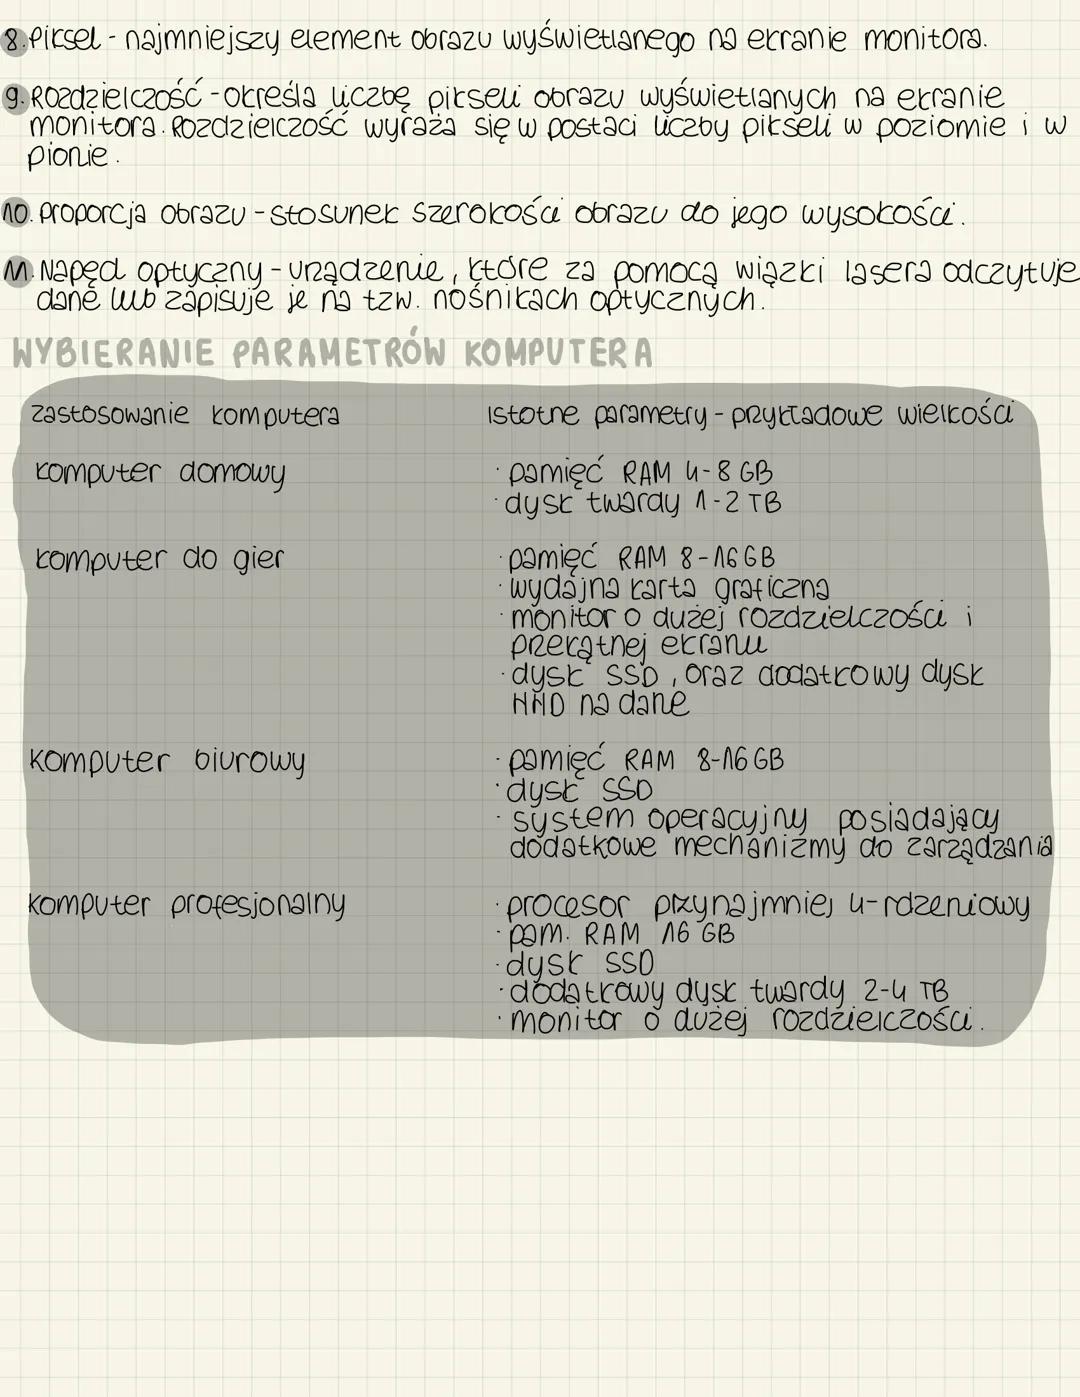 8. Piksel - najmniejszy element obrazu wyświetlanego na ekranie monitora.
9. Rozdzielczość - określa liczbę pikseli obrazu wyświetlanych na ekranie
monitora. Rozdzielczość wyraża się w postaci liczby pikseli w poziomie i w
pionie.
10. Proporcja obrazu - stosunek szerokości obrazu do jego wysokości.
11. Napęd optyczny - urządzenie, które za pomocą wiązki lasera odczytuje
dane lub zapisuje je na tzw. nośnikach optycznych.
WYBIERANIE PARAMETRÓW KOMPUTERA
zastosowanie komputera
Istotne parametry - przykładowe wielkości
komputer domowy
· pamięć RAM 4-8 GB
· dysk twardy 1-2 TB
komputer do gier
· pamięć RAM 8-16 GB
· wydajna karta graficzna
· monitor o dużej rozdzielczości i
przekątnej ekranu
· dysk SSD, oraz dodatkowy dysk
HHD na dane
komputer biurowy
· pamięć RAM 8-16 GB
· dysk SSD
· system operacyjny posiadający
dodatkowe mechanizmy do zarządzania
komputer profesjonalny
· procesor przynajmniej 4-rdzeniowy
· pam. RAM 16 GB
· dysk SSD
· dodatkowy dysk twardy 2-4 TB
· monitor o dużej rozdzielczości.